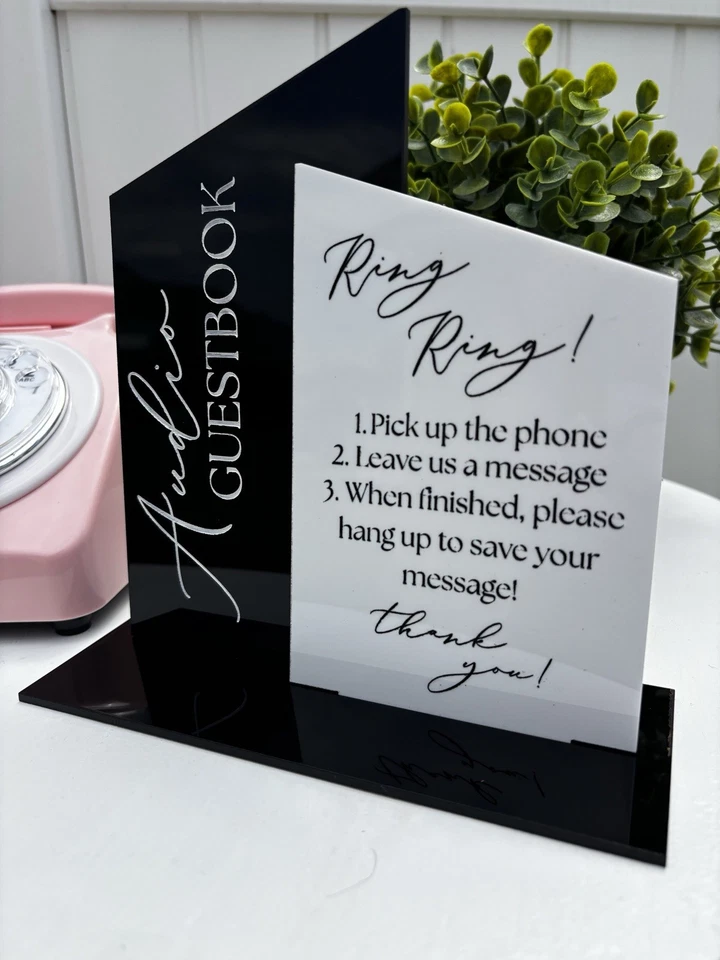 Audio
GUESTBOOK
Ring
Ring!
1. Pick up the phone
2. Leave us a message
3. When finished, please
hang up to save your
message!
thank
you!